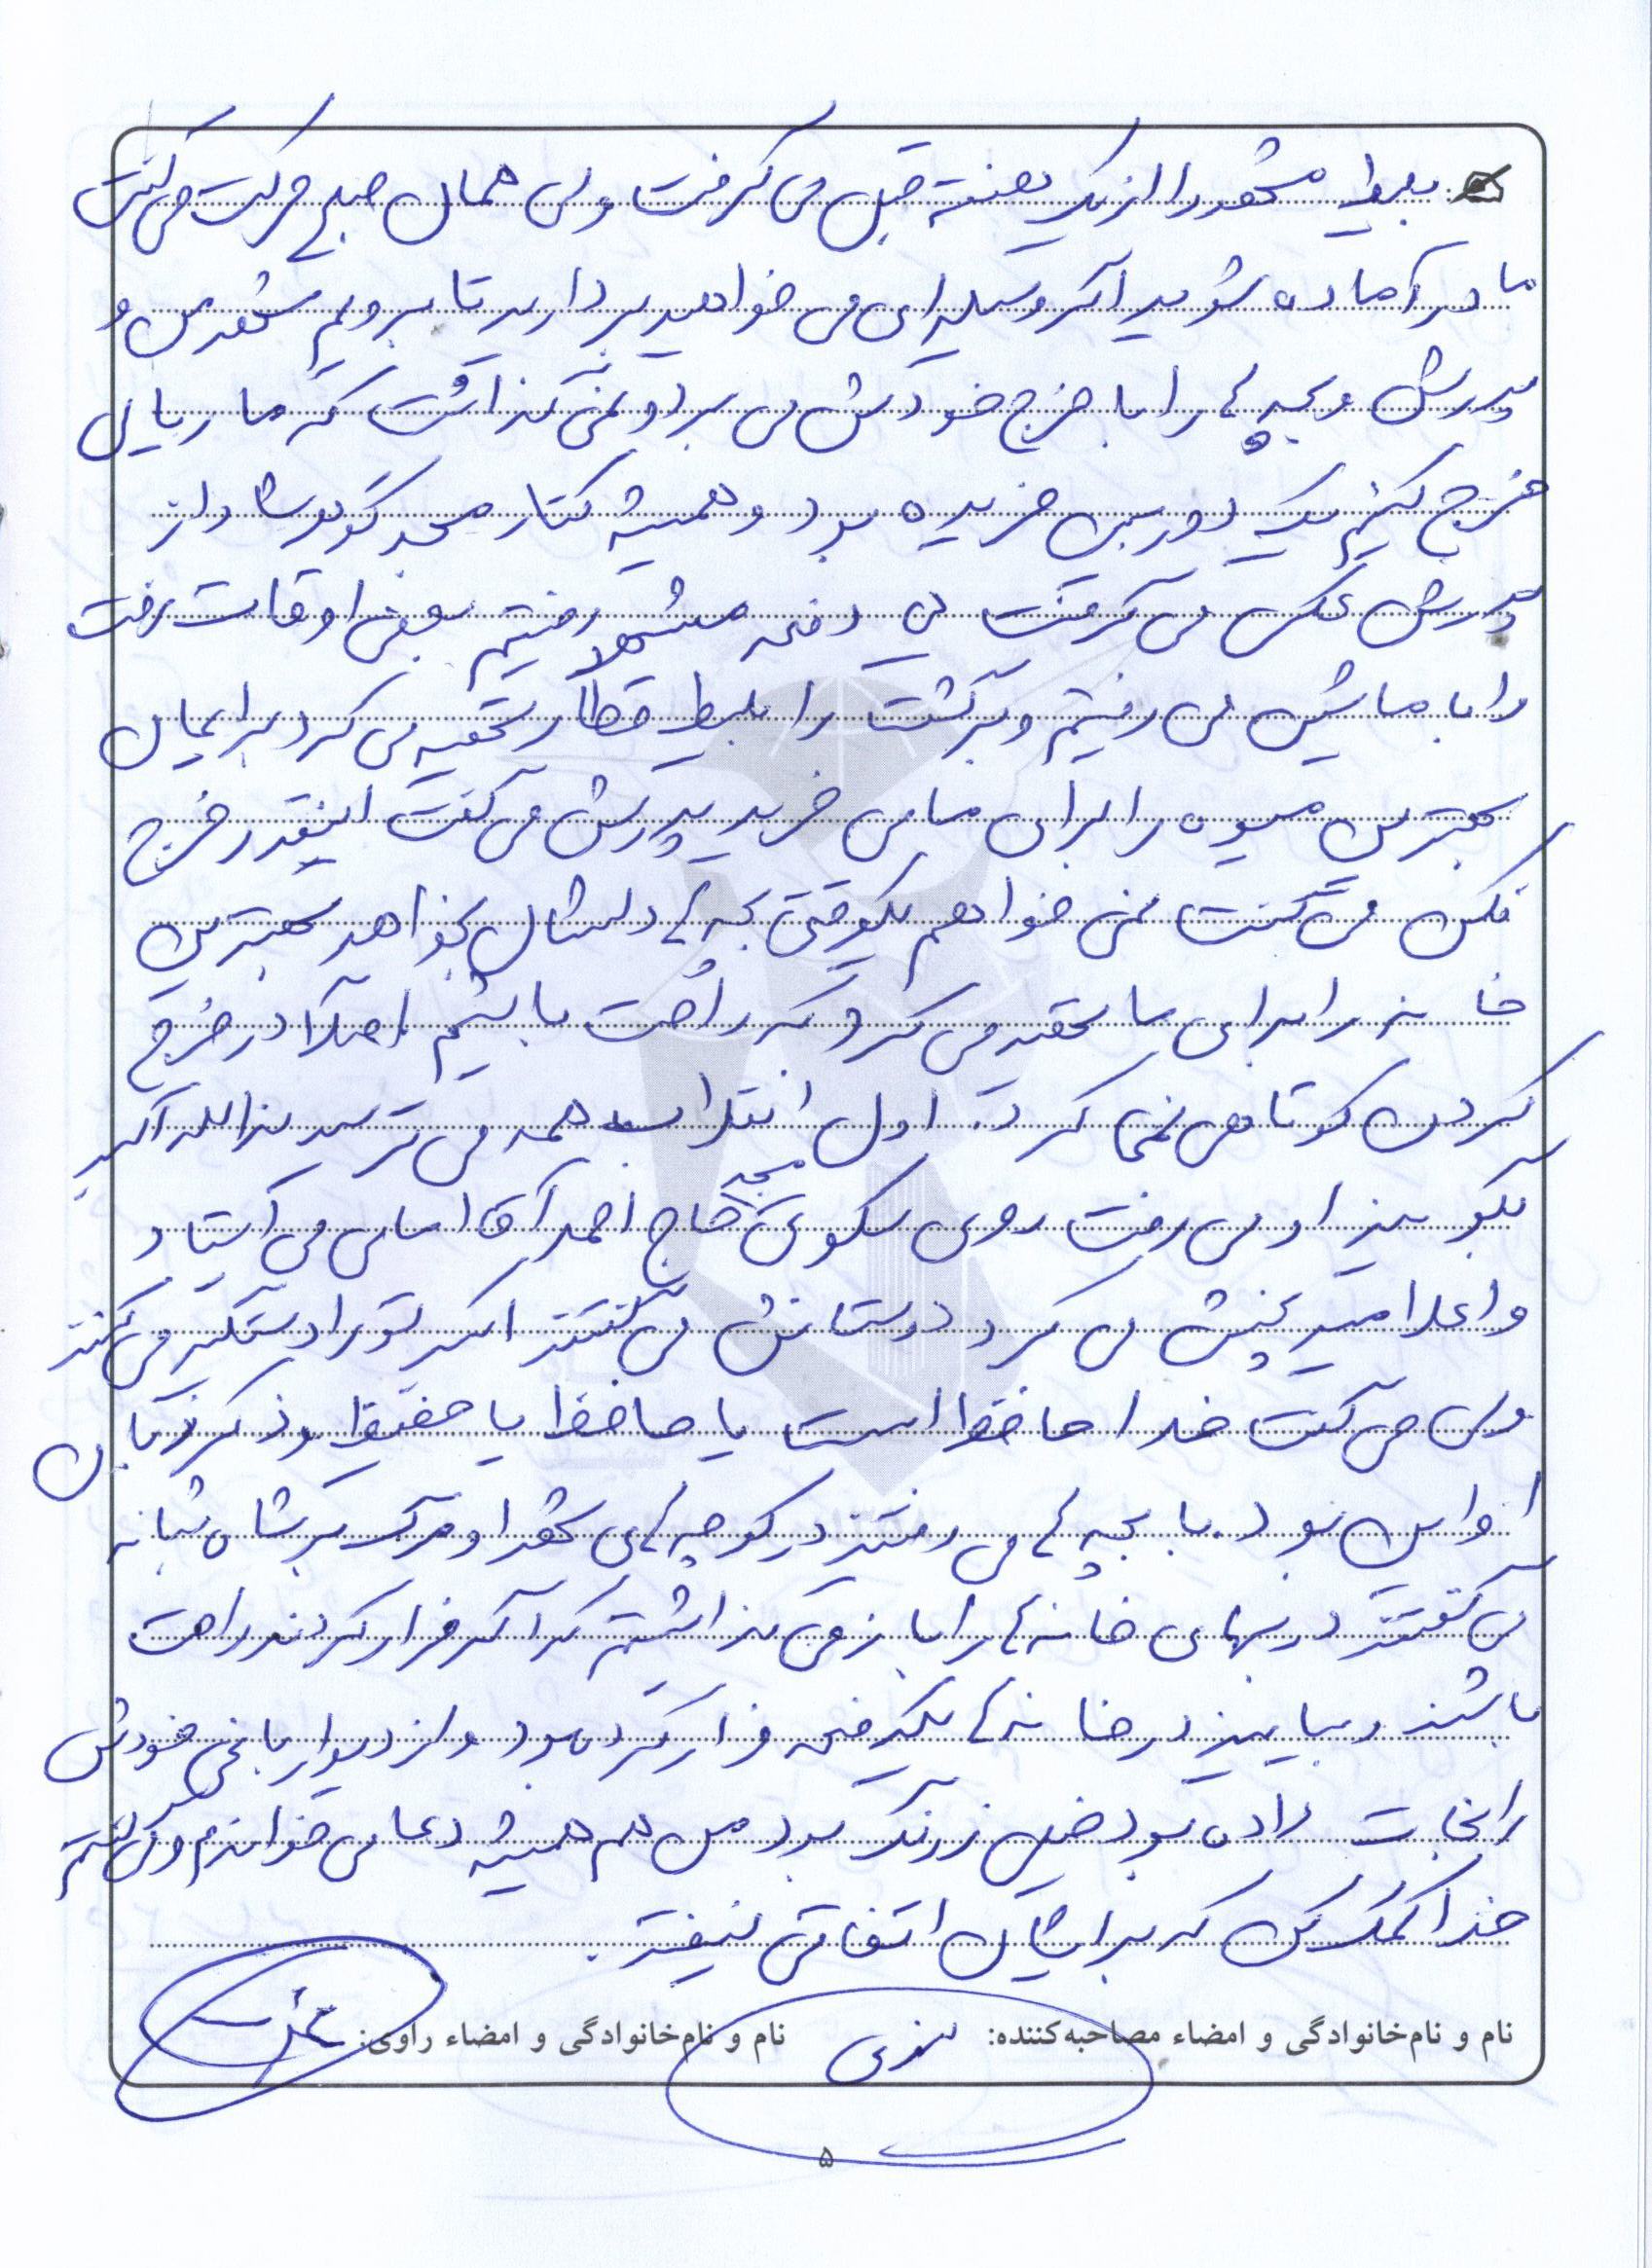 بلیط مشهد را از یک هفته قبل می گرفت ولی همان صبح حرکت می گفت
مادر آماده شوید اگر وسیله ای می خواهید بردارید تا برویم مشهد من و
پدرش و بچه ها را با خرج خودش می برد و نمی گذاشت که ما ریالی
خرج کنیم یک دوربین خریده بود و همیشه کنار مسجد گوهرشاد از
پدرش عکس می گرفت هر دفعه مشهد رفتیم بعضی اوقات رفت
را با ماشین می رفتیم و برگشت را بلیط قطار تهیه می کرد برایمان
بهترین میوه را برای ما می خرید پدرش می گفت اینقدر خرج
نکن می گفت نمی خواهم یکوقتی بچه ها دلشان بخواهد بهترین
خانه را برای ما تهیه می کرد که راحت باشیم اصلا در خرج
کردن کوتاهی نمی کرد. اول انقلاب همه می ترسیدند الله اکبر
بگویند او می رفت روی سکوی مسجد حاج احمد آقا امامی می ایستاد
و اعلامیه پخش می کرد دوستانش می گفتند اکبر تو را دستگیر می کنند
ولی می گفت خدا حافظ است یا حافظ یا حفیظ و ذکر زبان
او این بود. با بچه ها می رفتند در کوچه های شهر او مرگ بر شاه شبانه
می گفتند دربهای خانه ها را باز می گذاشتیم که اگر فرار کردند راحت
باشند و بیایند در خانه ها یکدفعه فرار کرده بود و از دیوار باغی خودش
را نجات داده بود خیلی زرنگ بود من هم همیشه دعا می خواندم و می گفتم
خدا کمک کن که برایشان اتفاقی نیفتد.
نام و نام‌خانوادگی و امضاء مصاحبه‌کننده: نام و نام‌خانوادگی و امضاء راوی:
۵